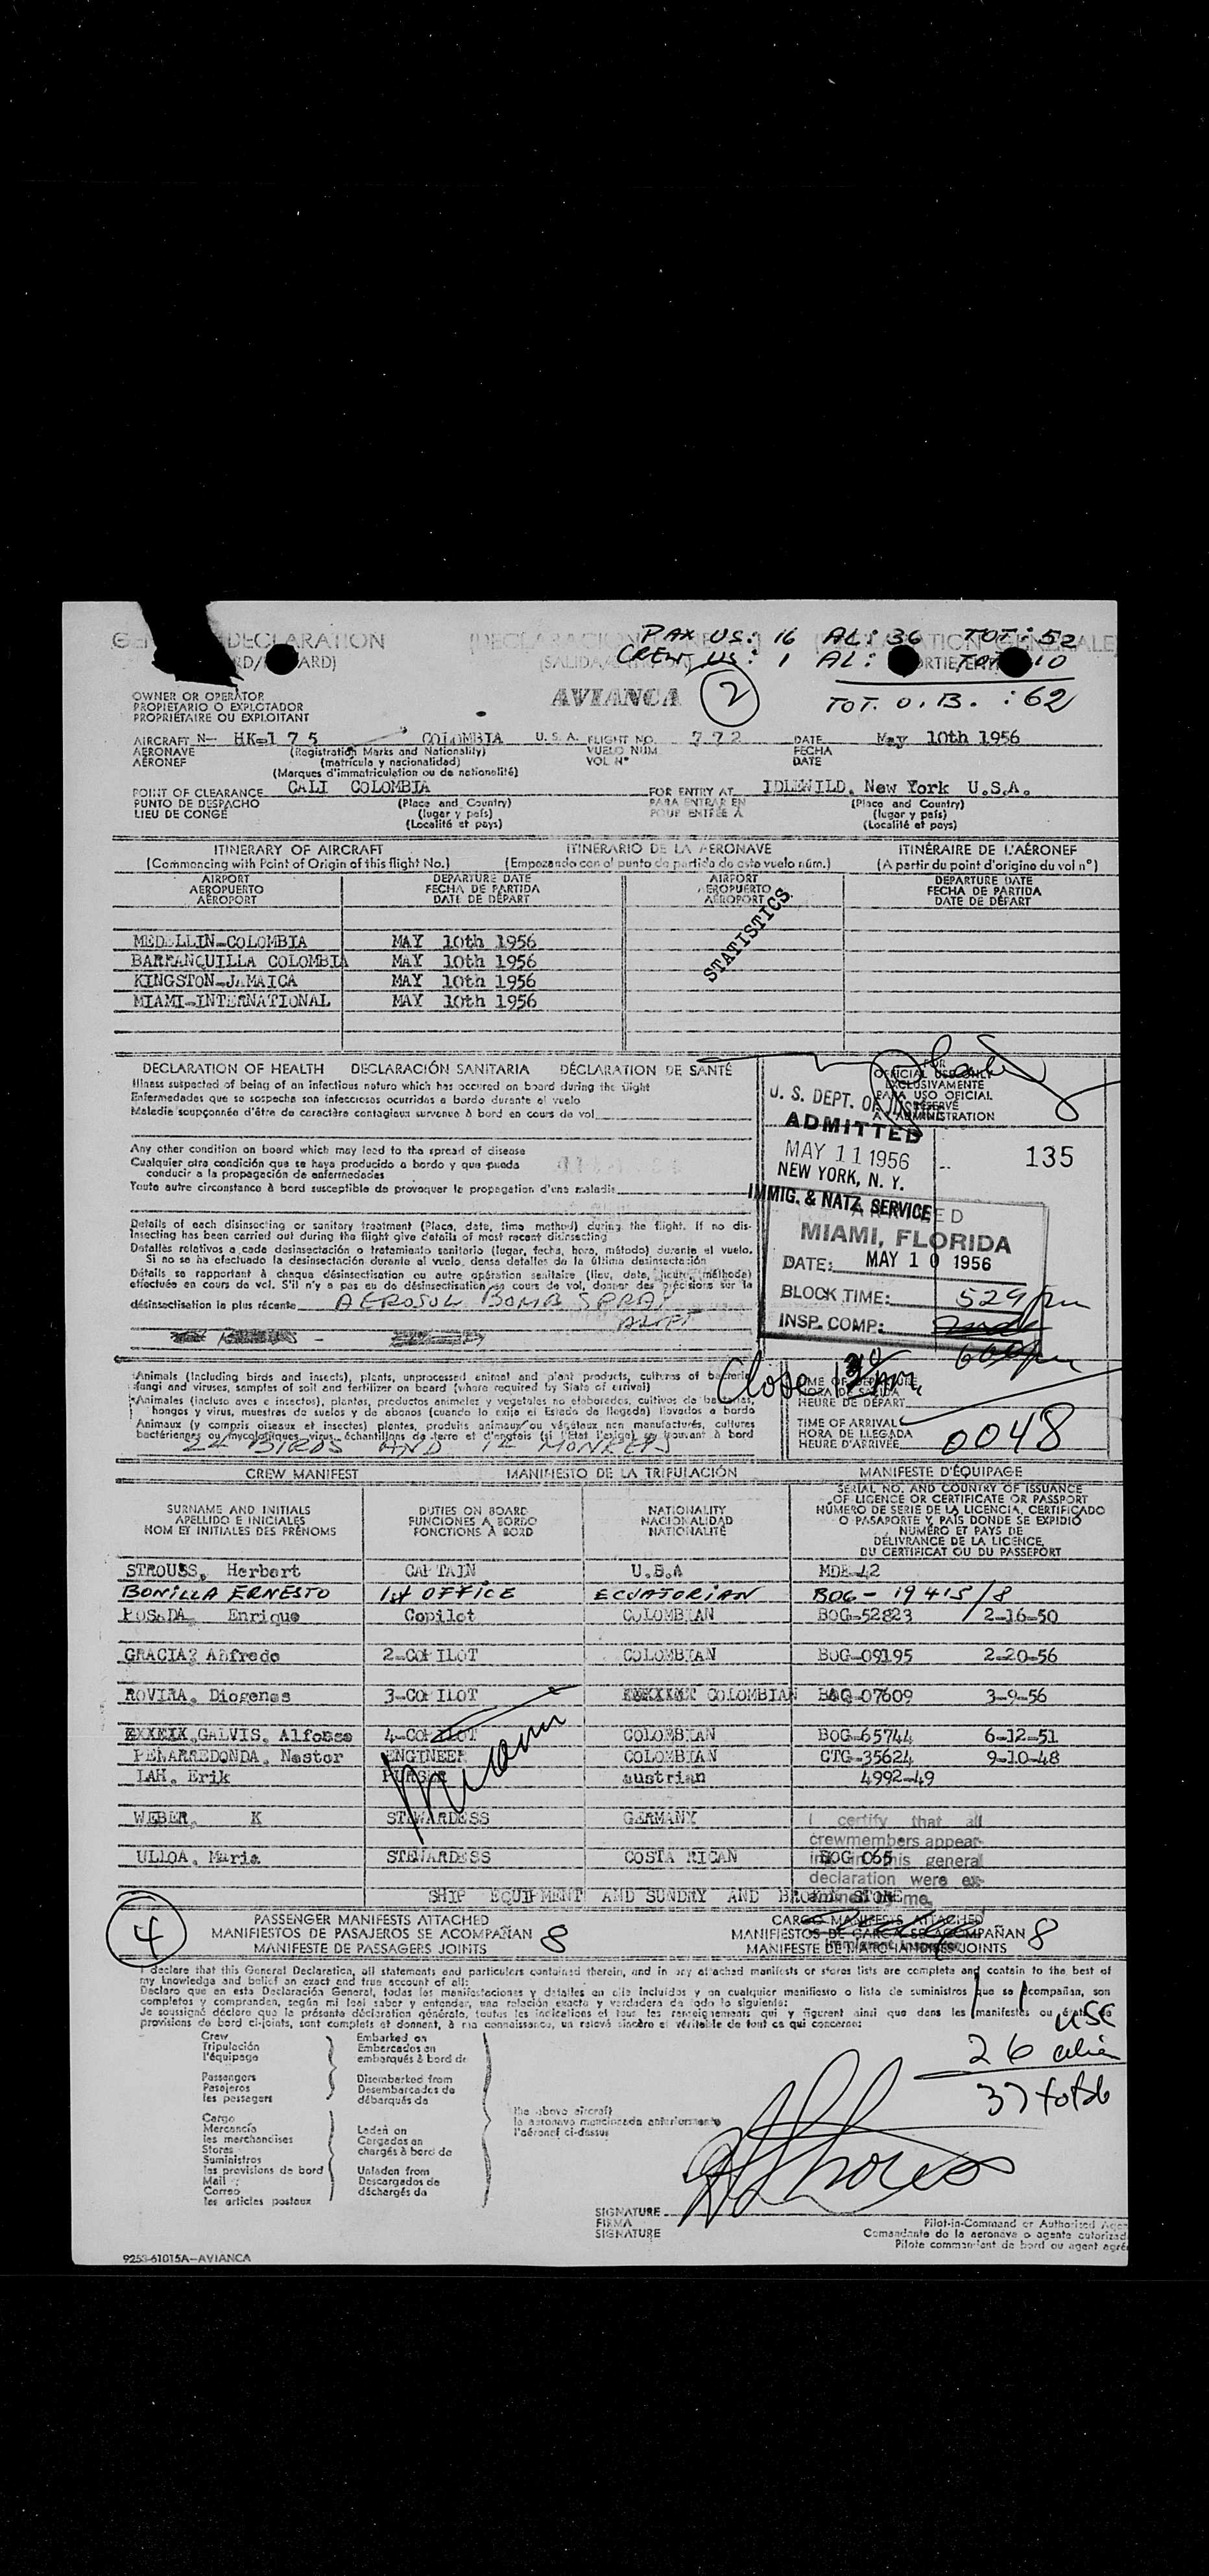 PAX US: 16 AL: 36 TOT: 52
CREW US: 1 AL: TOT 10
TOT. O. B. : 62
DECLARATION
OWNER OR OPERATOR
PROPIETARIO O EXPLOTADOR
PROPRIÉTAIRE OU EXPLOITANT
AVIANCA
2
AIRCRAFT N- HK-175 COLOMBIA U.S.A. FLIGHT NO. 772 DATE May 10th 1956
AERONAVE (Registration Marks and Nationality) VUELO NUM. FECHA
AÉRONEF (matrícula y nacionalidad) VOL Nº DATE
(Marques d'immatriculation ou de nationalité)
POINT OF CLEARANCE CALI COLOMBIA FOR ENTRY AT IDLEWILD, New York U.S.A.
PUNTO DE DESPACHO (Place and Country) PARA ENTRAR EN (Place and Country)
LIEU DE CONGÉ (lugar y país) POUR ENTRÉE À (lugar y país)
(Localité et pays) (Localité et pays)
ITINERARY OF AIRCRAFT ITINERARIO DE LA AERONAVE ITINÉRAIRE DE L'AÉRONEF
(Commencing with Point of Origin of this flight No.) (Empezando con el punto de partida de este vuelo núm.) (A partir du point d'origine du vol nº)
AIRPORT DEPARTURE DATE AIRPORT DEPARTURE DATE
AEROPUERTO FECHA DE PARTIDA AEROPUERTO FECHA DE PARTIDA
AÉROPORT DATE DE DÉPART AÉROPORT DATE DE DÉPART
STATISTICS
MEDELLIN-COLOMBIA MAY 10th 1956
BARRANQUILLA COLOMBIA MAY 10th 1956
KINGSTON-JAMAICA MAY 10th 1956
MIAMI-INTERNATIONAL MAY 10th 1956
DECLARATION OF HEALTH DECLARACIÓN SANITARIA DÉCLARATION DE SANTÉ
Illness suspected of being of an infectious nature which has occured on board during the flight
Enfermedades que se sospecha son infecciosas ocurridas a bordo durante el vuelo
Maladie soupçonnée d'être de caractère contagieux survenue à bord en cours de vol
FOR
OFFICIAL USE ONLY
EXCLUSIVAMENTE
PARA USO OFICIAL
RÉSERVÉ
A L'ADMINISTRATION
U. S. DEPT. OF JUSTICE
ADMITTED
MAY 11 1956
NEW YORK, N. Y.
IMMIG. & NATZ. SERVICE
135
Any other condition on board which may lead to the spread of disease
Cualquier otra condición que se haya producido a bordo y que pueda
conducir a la propagación de enfermedades
Toute autre circonstance à bord susceptible de provoquer la propagation d'une maladie
MIAMI, FLORIDA
DATE: MAY 10 1956
BLOCK TIME: 529 pm
INSP. COMP:
600 pm
Details of each disinsecting or sanitary treatment (Place, date, time method) during the flight. If no dis-
insecting has been carried out during the flight give details of most recent disinsecting
Detalles relativos a cada desinsectación o tratamiento sanitario (lugar, fecha, hora, método) durante el vuelo.
Si no se ha efectuado la desinsectación durante el vuelo, dense detalles de la última desinsectación
Détails se rapportant à chaque désinsectisation ou autre opération sanitaire (lieu, date, heure, méthode)
effectués en cours de vol. S'il n'y a pas eu de désinsectisation en cours de vol, donner des précisions sur la
désinsectisation la plus récente AEROSOL BOMB SPRAY
Close
Animals (Including birds and insects), plants, unprocessed animal and plant products, cultures of bacteria
fungi and viruses, samples of soil and fertilizer on board (where required by State of arrival)
Animales (incluso aves e insectos), plantas, productos animales y vegetales no elaborados, cultivos de bacterias,
hongos y virus, muestras de suelos y de abonos (cuando lo exija el Estado de llegada) llevados a bordo
Animaux (y compris oiseaux et insectes) plantes, produits animaux ou végétaux non manufacturés, cultures
bactériennes ou mycologiques, virus, échantillons de terre et d'engrais (si l'État l'exige) se trouvant à bord
22 BIRDS AND 12 MONKEYS
TIME OF DEPARTURE
HORA DE SALIDA
HEURE DE DÉPART
TIME OF ARRIVAL
HORA DE LLEGADA
HEURE D'ARRIVÉE
0048
CREW MANIFEST MANIFIESTO DE LA TRIPULACIÓN MANIFESTE D'ÉQUIPAGE
SURNAME AND INITIALS DUTIES ON BOARD NATIONALITY
APELLIDO E INICIALES FUNCIONES A BORDO NACIONALIDAD
NOM ET INITIALES DES PRÉNOMS FONCTIONS À BORD NATIONALITÉ
SERIAL NO. AND COUNTRY OF ISSUANCE
OF LICENCE OR CERTIFICATE OR PASSPORT
NÚMERO DE SERIE DE LA LICENCIA, CERTIFICADO
O PASAPORTE Y PAÍS DONDE SE EXPIDIÓ
NUMÉRO ET PAYS DE
DÉLIVRANCE DE LA LICENCE,
DU CERTIFICAT OU DU PASSEPORT
STROUSS, Herbert CAPTAIN U.S.A MDE-42
BONILLA ERNESTO 1st OFFICE ECUATORIAN BOG - 19415/8
POSADA Enrique Copilot COLOMBIAN BOG-52823 / 2-16-50
GRACIA? Alfredo 2-COPILOT COLOMBIAN BOG-09195 2-20-56
ROVIRA, Diogenes 3-COPILOT COLOMBIAN BAQ-07609 3-9-56
GALVIS, Alfonso 4-COPILOT COLOMBIAN BOG-65744 6-12-51
PEÑARREDONDA, Nestor ENGINEER COLOMBIAN CTG-35624 9-10-48
LAH, Erik PURSER austrian 4992-49
Miami
WEBER, K STEWARDESS GERMANY
ULLOA, Maria STEWARDESS COSTA RICAN BOG 065
I certify that all
crewmembers appear-
ing in this general
declaration were ex-
amined by me.
SHIP EQUIPMENT AND SUNDRY AND BROKEN STORE
4
PASSENGER MANIFESTS ATTACHED CARGO MANIFESTS ATTACHED
MANIFIESTOS DE PASAJEROS SE ACOMPAÑAN 8 MANIFIESTOS DE CARGA SE ACOMPAÑAN 8
MANIFESTE DE PASSAGERS JOINTS MANIFESTE DE MARCHANDISES JOINTS
I declare that this General Declaration, all statements and particulars contained therein, and in any attached manifests or stores lists are complete and contain to the best of
my knowledge and belief an exact and true account of all:
Declaro que en esta Declaración General, todas las manifestaciones y detalles en ella incluidos y en cualquier manifiesto o lista de suministros que se acompañan, son
completos y comprenden, según mi leal saber y entender, una relación exacta y verdadera de todo lo siguiente:
Je soussigné déclare que la présente déclaration générale, toutes les indications et tous les renseignements qui y figurent ainsi que dans les manifestes ou états de
provisions de bord ci-joints, sont complets et donnent, à ma connaissance, un relevé sincère et véritable de tout ce qui concerne:
11 USC
26 alien
37 total
Crew Embarked on
Tripulación Embarcados en
l'équipage embarqués à bord de
Passengers Disembarked from
Pasajeros Desembarcados de
les passagers débarqués de
Cargo
Mercancía Laden on
les marchandises Cargados en
Stores chargés à bord de
Suministros
les provisions de bord Unladen from
Mail Descargados de
Correo déchargés de
les articles postaux
the above aircraft
la aeronave mencionada anteriormente
l'aéronef ci-dessus
SIGNATURE
FIRMA
SIGNATURE
Pilot-in-Command or Authorized Agen
Comandante de la aeronave o agente autorizad
Pilote commandant de bord ou agent agré
9253-61015A-AVIANCA